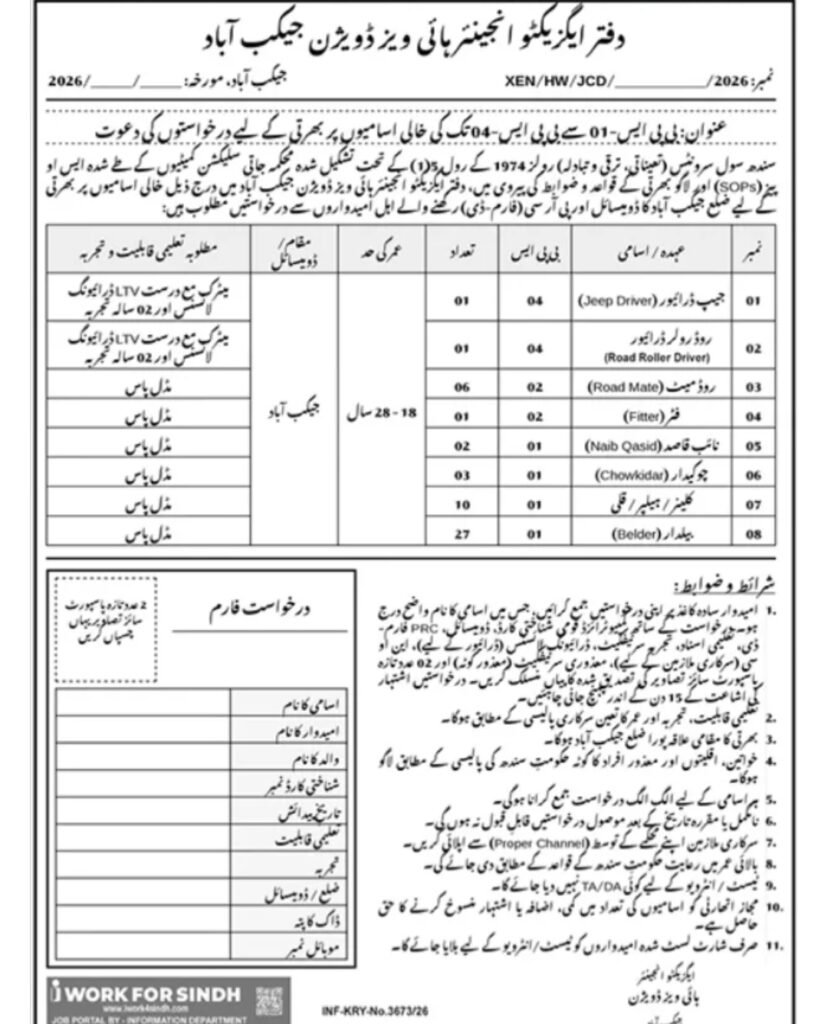 دفتر ایگزیکٹو انجینئر ہائی ویز ڈویژن جیکب آباد
نمبر: XEN/HW/JCD/__________/2026
جیکب آباد، مورخہ: _____/_____/2026
عنوان: بی پی ایس-01 سے بی پی ایس-04 تک کی خالی اسامیوں پر بھرتی کے لیے درخواستوں کی دعوت
سندھ سول سرونٹس (تعیناتی، ترقی و تبادلہ) رولز 1974 کے رول 5(1) کے تحت تشکیل شدہ محکمہ جاتی سلیکشن کمیٹیوں کے طے شدہ ایس او
پیز (SOPs) اور لاگو بھرتی کے قواعد و ضوابط کی پیروی میں، دفتر ایگزیکٹو انجینئر ہائی ویز ڈویژن جیکب آباد میں درج ذیل خالی اسامیوں پر بھرتی
کے لیے ضلع جیکب آباد کا ڈومیسائل اور پی آر سی (فارم-ڈی) رکھنے والے اہل امیدواروں سے درخواستیں مطلوب ہیں:
نمبر | عہدہ / اسامی | بی پی ایس | تعداد | عمر کی حد | مقام/ ڈومیسائل | مطلوبہ تعلیمی قابلیت و تجربہ
01 | جیپ ڈرائیور (Jeep Driver) | 04 | 01 | 18 - 28 سال | جیکب آباد | میٹرک مع درست LTV ڈرائیونگ لائسنس اور 02 سالہ تجربہ
02 | روڈ رولر ڈرائیور (Road Roller Driver) | 04 | 01 | میٹرک مع درست LTV ڈرائیونگ لائسنس اور 02 سالہ تجربہ
03 | روڈ میٹ (Road Mate) | 02 | 06 | مڈل پاس
04 | فٹر (Fitter) | 02 | 01 | مڈل پاس
05 | نائب قاصد (Naib Qasid) | 01 | 02 | مڈل پاس
06 | چوکیدار (Chowkidar) | 01 | 03 | مڈل پاس
07 | کلینر / ہیلپر / قلی | 01 | 10 | مڈل پاس
08 | بیلدار (Belder) | 01 | 27 | مڈل پاس
شرائط و ضوابط:
1. امیدوار سادہ کاغذ پر اپنی درخواستیں جمع کرائیں، جس میں اسامی کا نام واضح درج
ہو۔ درخواست کے ساتھ کمپیوٹرائزڈ قومی شناختی کارڈ، ڈومیسائل، PRC فارم-
ڈی، تعلیمی اسناد، تجربہ سرٹیفکیٹ، ڈرائیونگ لائسنس (ڈرائیور کے لیے)، این او
سی (سرکاری ملازمین کے لیے)، معذوری سرٹیفکیٹ (معذور کوٹہ) اور 02 عدد تازہ
پاسپورٹ سائز تصاویر کی تصدیق شدہ کاپیاں منسلک کریں۔ درخواستیں اشتہار
کی اشاعت کے 15 دن کے اندر پہنچ جانی چاہئیں۔
2. تعلیمی قابلیت، تجربہ اور عمر کا تعین سرکاری پالیسی کے مطابق ہوگا۔
3. بھرتی کا مقامی علاقہ پورا ضلع جیکب آباد ہوگا۔
4. خواتین، اقلیتوں اور معذور افراد کا کوٹہ حکومتِ سندھ کی پالیسی کے مطابق لاگو
ہوگا۔
5. ہر اسامی کے لیے الگ الگ درخواست جمع کرانا ہوگی۔
6. نامکمل یا مقررہ تاریخ کے بعد موصول درخواستیں قابلِ قبول نہ ہوں گی۔
7. سرکاری ملازمین اپنے محکمے کے توسط (Proper Channel) سے اپلائی کریں۔
8. بالائی عمر میں رعایت حکومتِ سندھ کے قواعد کے مطابق دی جائے گی۔
9. ٹیسٹ / انٹرویو کے لیے کوئی TA/DA نہیں دیا جائے گا۔
10. مجاز اتھارٹی کو اسامیوں کی تعداد میں کمی، اضافہ یا اشتہار منسوخ کرنے کا حق
حاصل ہے۔
11. صرف شارٹ لسٹ شدہ امیدواروں کو ٹیسٹ/انٹرویو کے لیے بلایا جائے گا۔
ایگزیکٹو انجینئر
ہائی ویز ڈویژن
جیکب آباد
درخواست فارم
2 عدد تازہ پاسپورٹ
سائز تصاویر یہاں
چسپاں کریں
اسامی کا نام
امیدوار کا نام
والد کا نام
شناختی کارڈ نمبر
تاریخِ پیدائش
تعلیمی قابلیت
تجربہ
ضلع / ڈومیسائل
ڈاک کا پتہ
موبائل نمبر
i WORK FOR SINDH
www.iwork4sindh.com
JOB PORTAL BY - INFORMATION DEPARTMENT
INF-KRY-No.3673/26